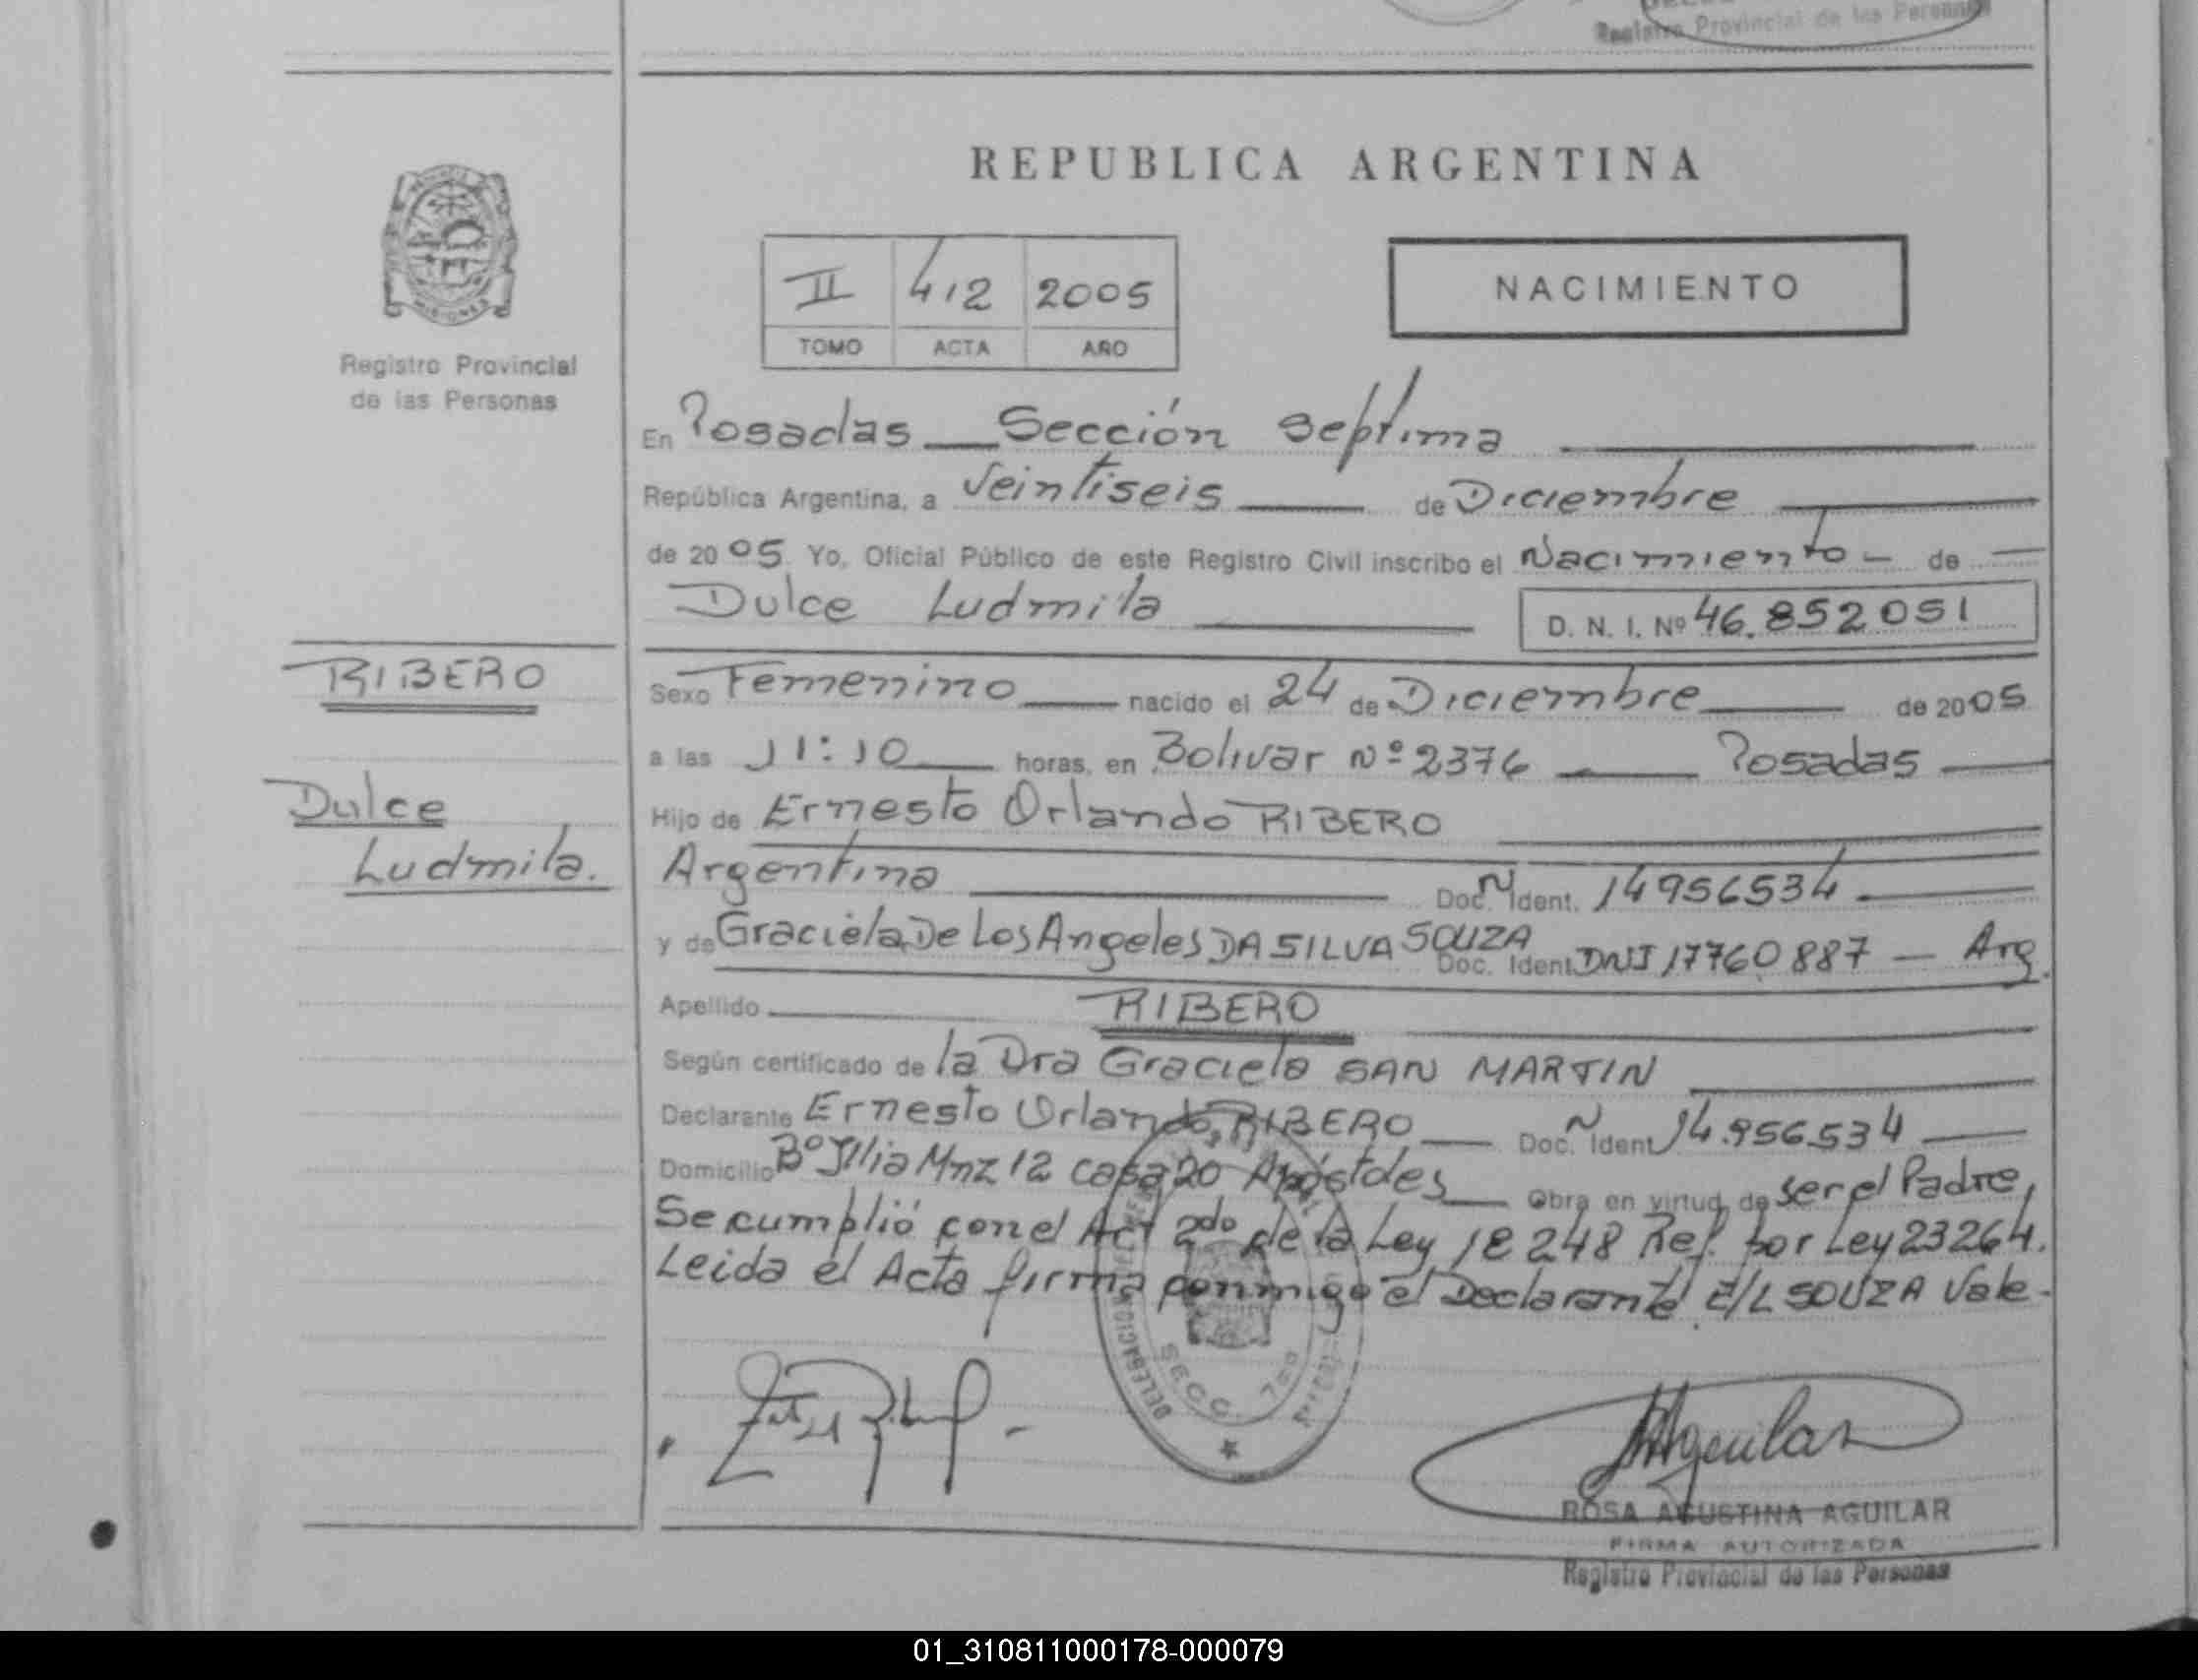 Registro Provincial de las Personas
REPUBLICA ARGENTINA
MISIONES
Registro Provincial
de las Personas
II 412 2005
TOMO ACTA AÑO
NACIMIENTO
En Posadas Sección Septima
República Argentina, a Veintiseis de Diciembre
de 2005 Yo, Oficial Público de este Registro Civil inscribo el Nacimiento de
Dulce Ludmila D. N. I. Nº 46.852051
RIBERO
Dulce
Ludmila.
Sexo Femenino nacido el 24 de Diciembre de 2005
a las 11:10 horas, en Bolivar Nº 2376 Posadas
Hijo de Ernesto Orlando RIBERO
Argentina Doc. Ident. 14956534
y de Graciela De Los Angeles DA SILVA SOUZA Doc. Ident. DNI 17760887 - Arg.
Apellido RIBERO
Según certificado de la Dra Graciela SAN MARTIN
Declarante Ernesto Orlando RIBERO Doc. Ident 14.956534
Domicilio Bº Illia Mnz 12 casa 20 Apóstoles Obra en virtud de ser el Padre,
Se cumplió con el Act 2do de la Ley 18248 Ref. por Ley 23264.
Leida el Acta firma conmigo el Declarante E/L SOUZA Vale-
SECC. 7ma
Aguilar
ROSA AGUSTINA AGUILAR
FIRMA AUTORIZADA
Registro Provincial de las Personas
01_310811000178-000079